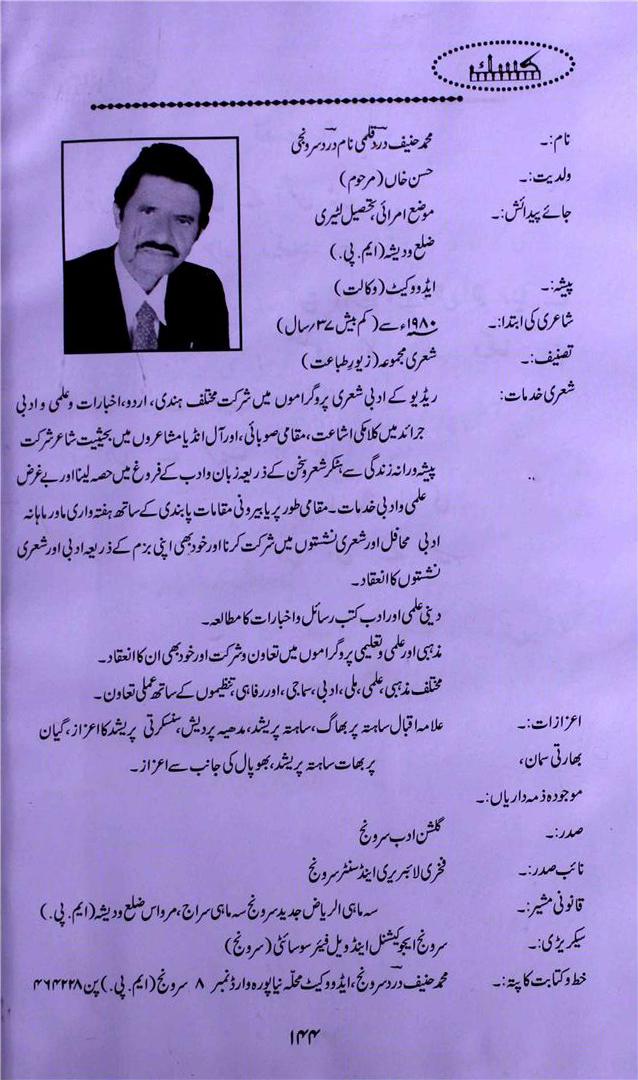 کسک
نام:۔ محمد حنیف درد قلمی نام درد سرونجی
ولدیت:۔ حسن خاں (مرحوم)
جائے پیدائش:۔ موضع امرائی، تحصیل لٹیری
ضلع ودیشہ (ایم. پی.)
پیشہ:۔ ایڈووکیٹ (وکالت)
شاعری کی ابتدا:۔ ۱۹۸۰ء سے (کم بیش ۳۷؍سال)
تصنیف:۔ شعری مجموعہ (زیور طباعت)
شعری خدمات: ریڈیو کے ادبی شعری پروگراموں میں شرکت مختلف ہندی، اردو، اخبارات و علمی و ادبی
جرائد میں کلام کی اشاعت، مقامی صوبائی، اور آل انڈیا مشاعروں میں بحیثیت شاعر شرکت
پیشہ ورانہ زندگی سے ہٹکر شعر و سخن کے ذریعہ زبان و ادب کے فروغ میں حصہ لینا اور بے غرض
علمی و ادبی خدمات۔ مقامی طور پر یا بیرونی مقامات پابندی کے ساتھ ہفتہ واری ماور ماہانہ
ادبی محافل اور شعری نشستوں میں شرکت کرنا اور خود بھی اپنی بزم کے ذریعہ ادبی اور شعری
نشستوں کا انعقاد۔
دینی علمی اور ادب کتب رسائل و اخبارات کا مطالعہ۔
مذہبی اور علمی و تعلیمی پروگراموں میں تعاون و شرکت اور خود بھی ان کا انعقاد۔
مختلف مذہبی، علمی، ملی، ادبی، سماجی، اور رفاہی، تنظیموں کے ساتھ عملی تعاون۔
اعزازات:۔ علامہ اقبال ساہتہ پربھاگ، ساہتہ پریشد، مدھیہ پردیش، سنسکرتی پریشد کا اعزاز، گیان
بھارتی سمان، پربھات ساہتہ پریشد، بھوپال کی جانب سے اعزاز۔
موجودہ ذمہ داریاں:۔
صدر:۔ گلشن ادب سرونج
نائب صدر:۔ فخری لائبریری اینڈ سنٹر سرونج
قانونی مشیر:۔ سہ ماہی الریاض جدید سرونج سہ ماہی سراج، مرواس ضلع ودیشہ (ایم. پی.)
سیکریڑی:۔ سرونج ایجوکیشنل اینڈ ویل فیئر سوسائٹی (سرونج)
خط و کتابت کا پتہ:۔ محمد حنیف درد سرونج، ایڈووکیٹ محلّہ نیاپورہ وارڈ نمبر ۸ سرونج (ایم. پی.) پن ۴۶۴۲۲۸
۱۴۴